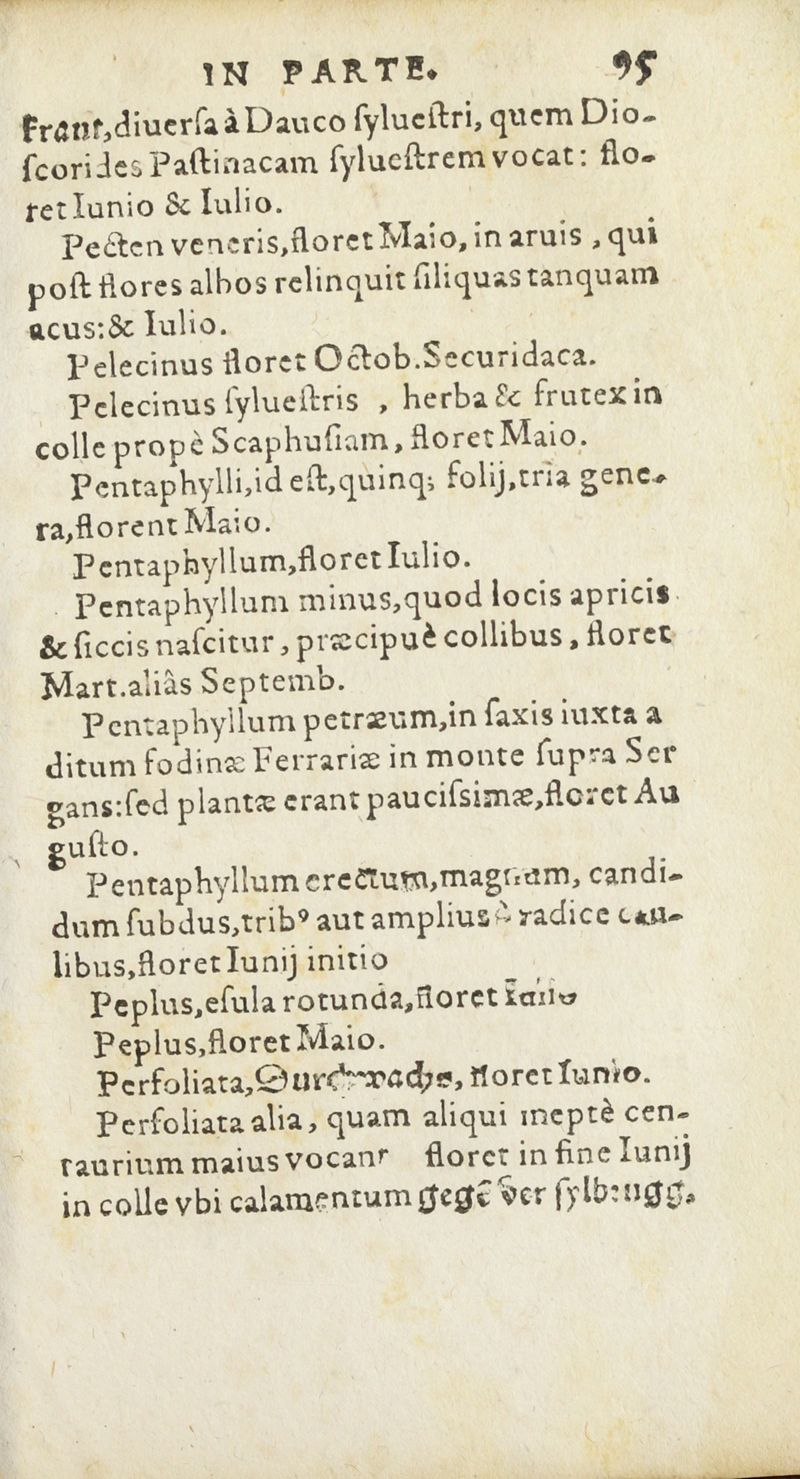 IN PARTE. 95
kraut,diuerſa à Dauco ſylueſtri, quem Dio-
ſcorides Paſtinacam ſylueſtrem vocat: flo-
ret Iunio & Iulio.
Pecten veneris,floret Maio, in aruis , qui
poſt flores albos relinquit ſiliquas tanquam
acus:& Iulio.
Pelecinus floret Octob.Securidaca.
Pelecinus ſylueſtris , herba & frutex in
colle propè Scaphuſiam, floret Maio.
Pentaphylli,id eſt,quinq; folij,tria gene-
ra,florent Maio.
Pentaphyllum,floret Iulio.
Pentaphyllum minus,quod locis apricis
& ſiccis naſcitur, præcipuè collibus, floret
Mart.aliâs Septemb.
Pentaphyllum petræum,in ſaxis iuxta a
ditum fodinæ Ferrariæ in monte ſupra Ser
gans:ſed plantæ erant pauciſsimæ,floret Au
guſto.
Pentaphyllum erectum,magnum, candi-
dum ſubdus,tribꝰ aut amplius à radice cau-
libus,floret Iunij initio
Peplus,eſula rotunda,floret
Peplus,floret Maio.
Perfoliata, floret Iunio.
Perfoliata alia, quam aliqui ineptè cen-
taurium maius vocant floret in fine Iunij
in colle vbi calamentum gegē der ſylbrugg.